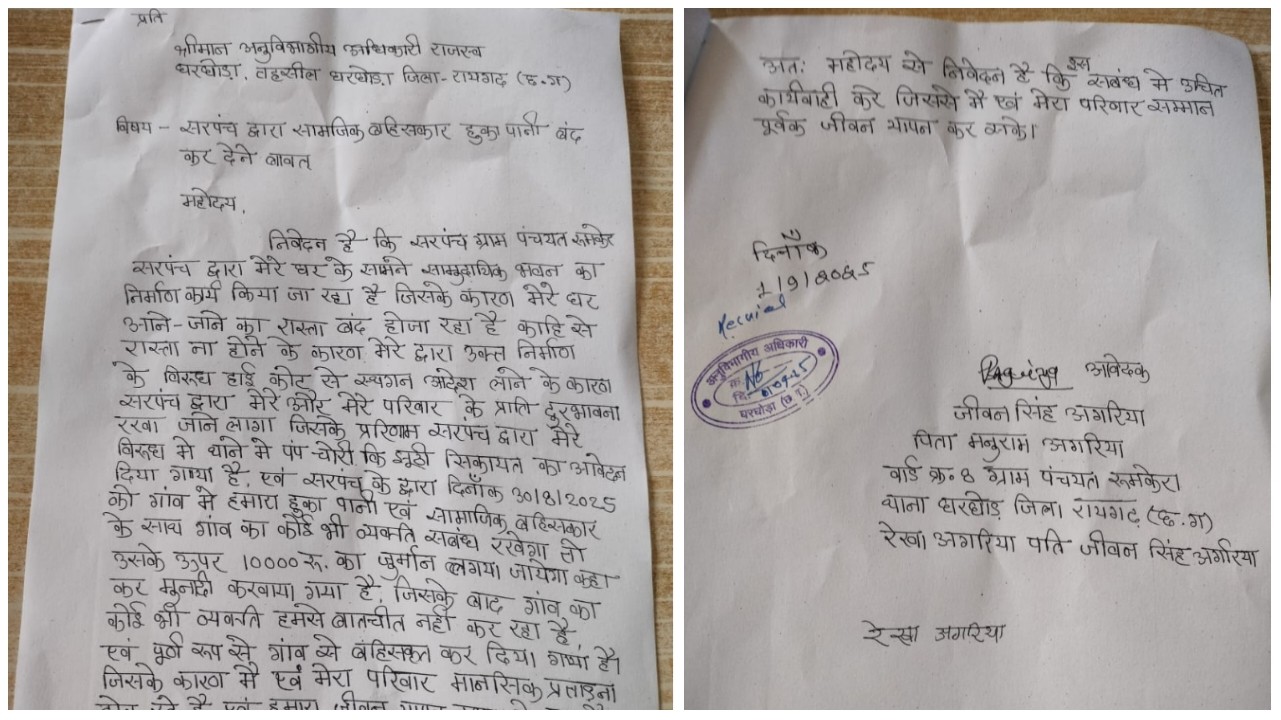 प्रति
श्रीमान अनुविभागीय अधिकारी राजस्व
घरघोड़ा, तहसील घरघोड़ा जिला- रायगढ़ (छ.ग)
विषय - सरपंच द्वारा सामाजिक बहिसकार हुका पानी बंद
कर देने बावत
महोदय,
निवेदन है कि सरपंच ग्राम पंचयत रूमकेरा
सरपंच द्वारा मेरे घर के सामने सामुदायिक भवन का
निर्माण कार्य किया जा रहा है जिसके कारण मेरे घर
आने-जाने का रास्ता बंद होजा रहा है काहि से
रास्ता ना होने के कारण मेरे द्वारा उक्त निर्माण
के विरूध हाई कोट से स्थगन आदेश लाने के कारण
सरपंच द्वारा मेरे और मेरे परिवार के प्राति दुरभावना
रखा जाने लागा जिसके प्ररिणाम सरपंच द्वारा मेरे
विरूध मे थाने मे पंप-चोरी कि झूठी सिकायत का आवेदन
दिया गया है, एवं सरपंच के द्वारा दिनाँक 30/8/2025
को गांव मे हमारा हुका पानी एवं सामाजिक बहिसकार
के साथ गांव का कोई भी व्यक्ति सबंध रखेगा तो
उसके ऊपर 10000 रू. का जुर्मान लगया जायेगा कहा
कर मुनादी करवाया गया है, जिसके बाद गांव का
कोई भी व्यक्ति हमसे बातचीत नही कर रहा है
एवं पूर्ण रूप से गांव से बहिसकृत कर दिया गया है।
जिसके कारण मै एवं मेरा परिवार मानसिक प्रताड़ना
रहे है एवं हमारा जीवन
अत: महोदय से निवेदन है कि इस सबंध मे उचित
कार्यवाही करे जिससे मै एवं मेरा परिवार सम्मान
पूर्वक जीवन यापन कर सके।
दिनाँक
1/9/2025
अनुविभागीय अधिकारी
क्र.
दि. 01-09-25
घरघोड़ा (छ.ग.)
आवेदक
जीवन सिंह अगरिया
पिता मनुराम अगरिया
वार्ड क्र. 8 ग्राम पंचयत रूमकेरा
थाना घरघोड़ जिला रायगढ़ (छ.ग)
रेखा अगरिया पति जीवन सिंह अगरिया
रेखा अगरिया